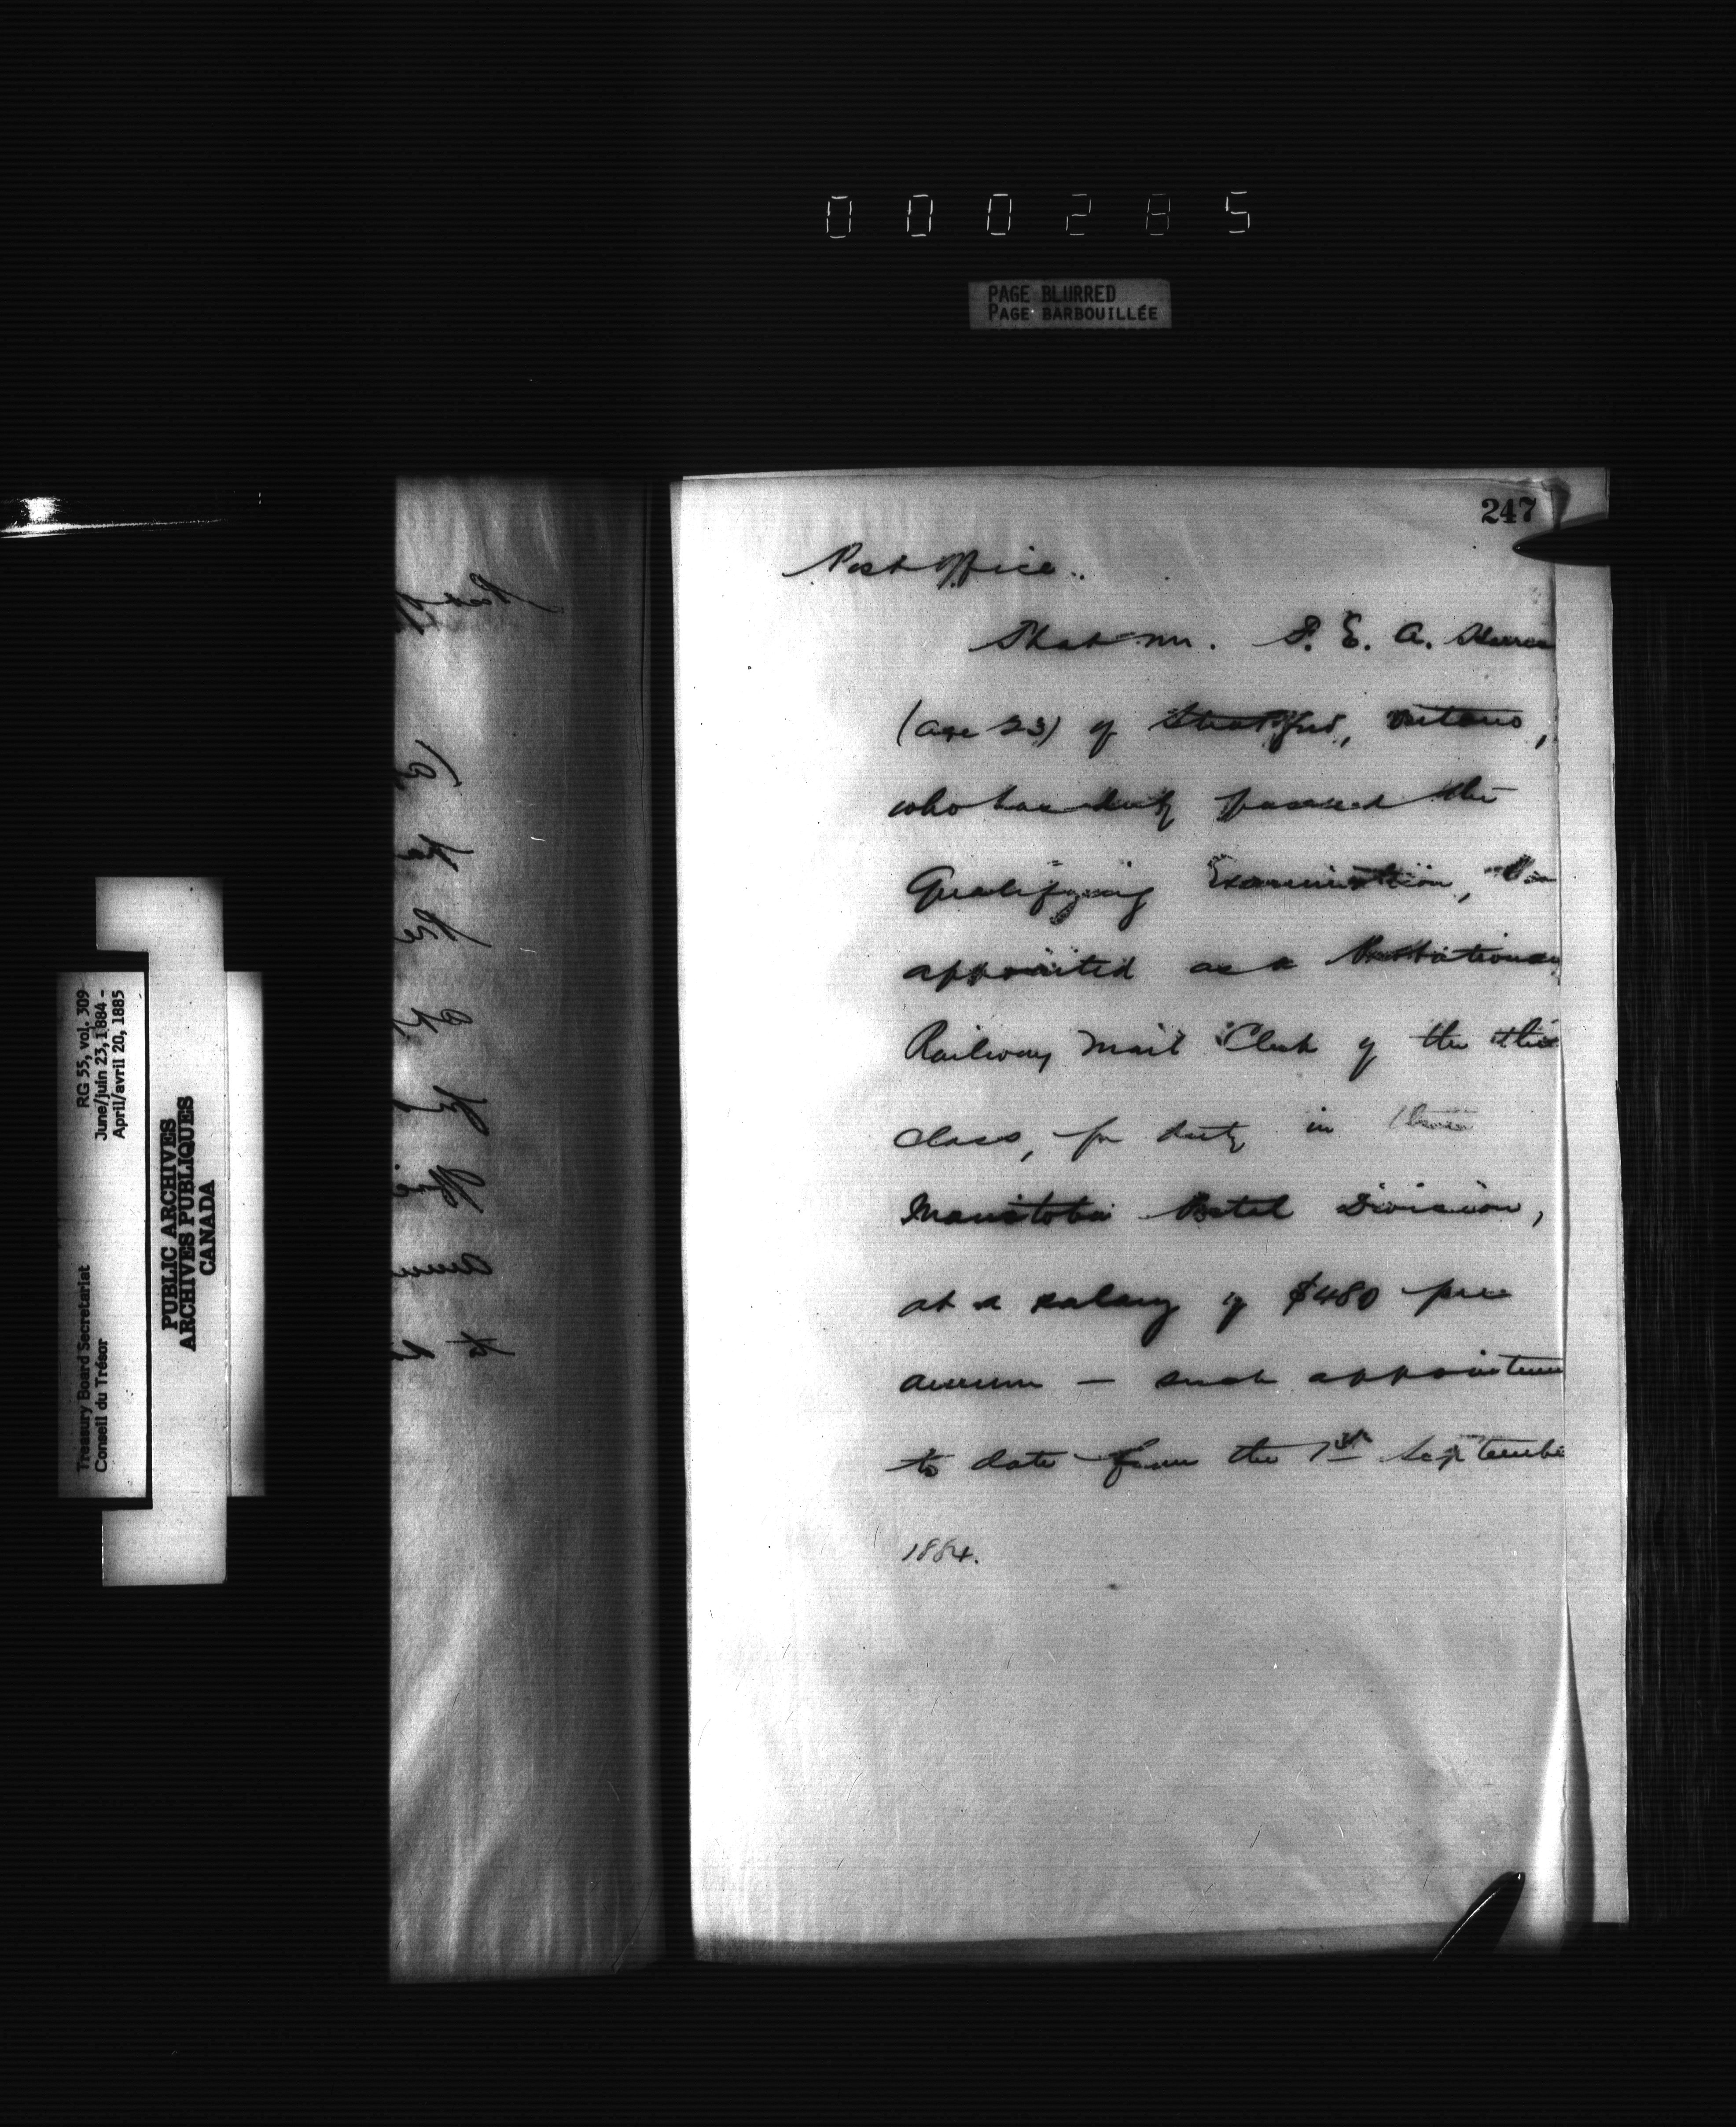 000285
PAGE BLURRED
PAGE BARBOUILLÉE
247
Post Office.
That Mr. F. E. A.
(age 23) of Stratford, Ontario,
who has duly passed the
Qualifying Examination, be
appointed as a Probationary
Railway Mail Clerk of the third
class, for duty in the
Manitoba Postal Division,
at a salary of $480 per
annum — such appointment
to date from the 1st September
1884.
RG 55, vol. 309
June/juin 23, 1884 -
April/avril 20, 1885
Treasury Board Secretariat
Conseil du Trésor
PUBLIC ARCHIVES
ARCHIVES PUBLIQUES
CANADA